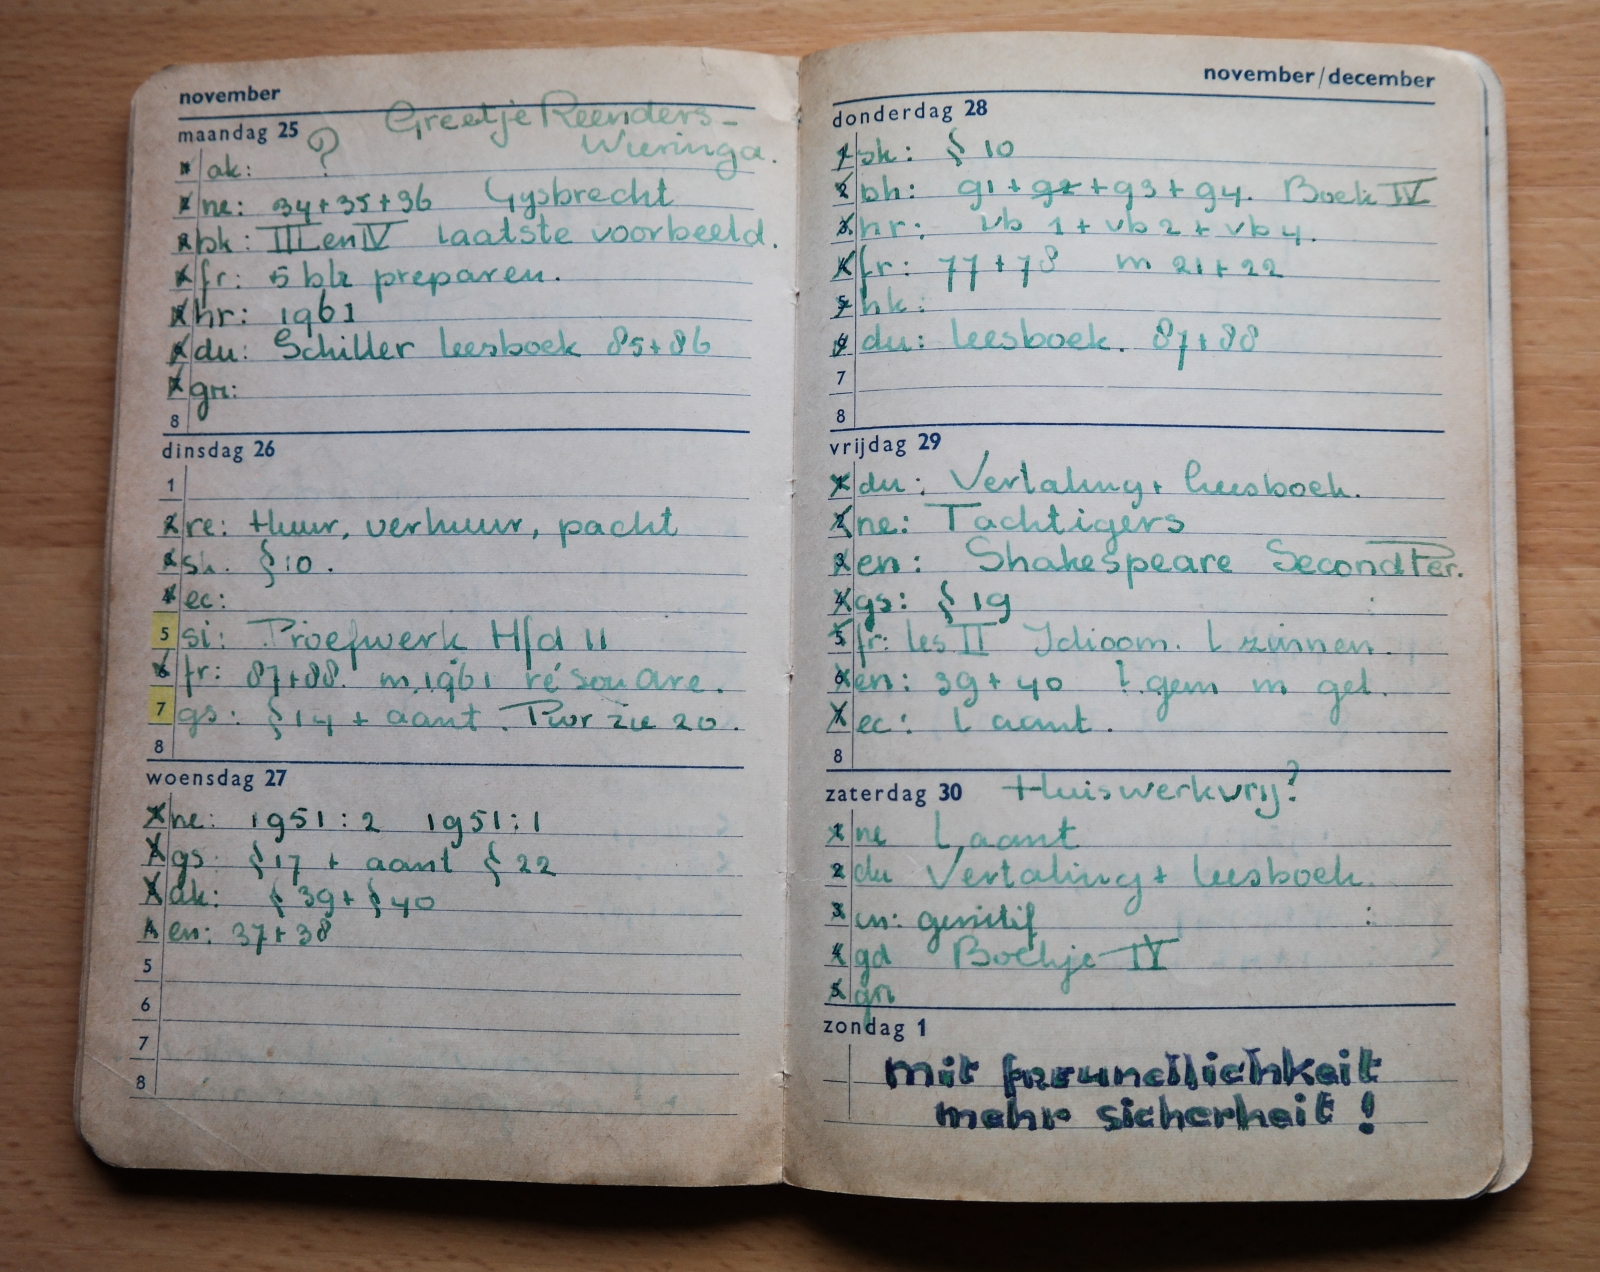 november
maandag 25 ? Greetje Reenders-
Wieringa.
ak:
ne: 34+35+36 Gysbrecht
bk: III en IV laatste voorbeeld.
fr: 5 blz preparen.
hr: 1961
du: Schiller leesboek 85+86
gn:
8
dinsdag 26
1
2 re: Huur, verhuur, pacht
sk. § 10.
4 ec:
5 si: Proefwerk Hfd 11
6 fr: 87+88. m. 1961 résouare.
7 gs: § 14 + aant. Pwr zie 20.
8
woensdag 27
ne: 1951:2 1951:1
gs. § 17 + aant § 22
ak: § 39+ § 40
4 en: 37+38
5
6
7
8
november/december
donderdag 28
1 sk: § 10
2 bh: g1 + g2 + g3 + g4. Boek IV
3 nr: vb 1 + vb 2 + vb 4.
4 fr: 77+78 m 21+22
5 hk:
du: leesboek. 87+88
7
8
vrijdag 29
1 du: Vertaling + leesboek.
2 ne: Tachtigers
3 en: Shakespeare Second Per.
4 gs: § 19
5 fr: les II Idioom. L zinnen.
6 en: 39+40 L gem m gel.
7 ec: L aant.
8
zaterdag 30 Huiswerkvrij?
1 ne L aant
2 du Vertaling + leesboek.
3 en: genitif
4 gd Boekje IV
5 gn
zondag 1
mit freundlichkeit
mehr sicherheit!